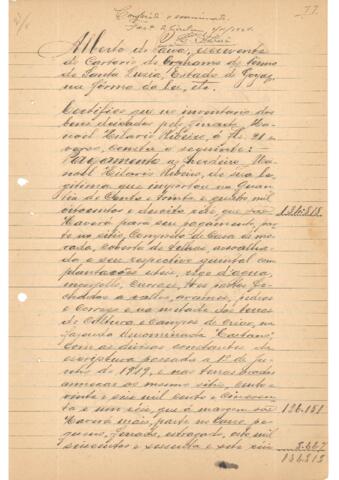 77.
Conferido e concertado.
Alberto de Paiva, escrevente
do Cartorio de Orphams do termo
de Santa Luzia, Estado de Goyaz,
na fórma da Lei, etc.
Certifico que no inventario dos
bens deixados pelo finado Ma-
noel Hilario Ribeiro, á fls. 91 e
verso, consta o seguinte:
Pagamento ao herdeiro Ma-
noel Hilario Ribeiro, de sua le-
gitima que importou na quan-
tia de cento e trinta e quatro mil
oitocentos e dezoito reis, que
134:818
Haverá para seu pagamento, par-
te no sitio, composto de casa de mo-
rada, coberta de telhas, assoalha-
da e seu respectivo quintal com
plantações uteis, rego d'agua,
monjollo, curraes, tres pastos fe-
chados a vallos, arames, pedras
e corrego e na metade das terras
de cultura e campos de crear, na
fazenda denominada
Com as divisas constantes da
escriptura passada a 1º de Ju-
nho de 1919, e nas terras
annexas ao mesmo sitio, cento e
vinte e seis mil cento e cincoen-
ta e um réis, que á margem
126.151
Haverá mais, parte no
queno, ferrado, estragado, oito mil
seiscentos e sessenta e sete reis
8.667
134.818